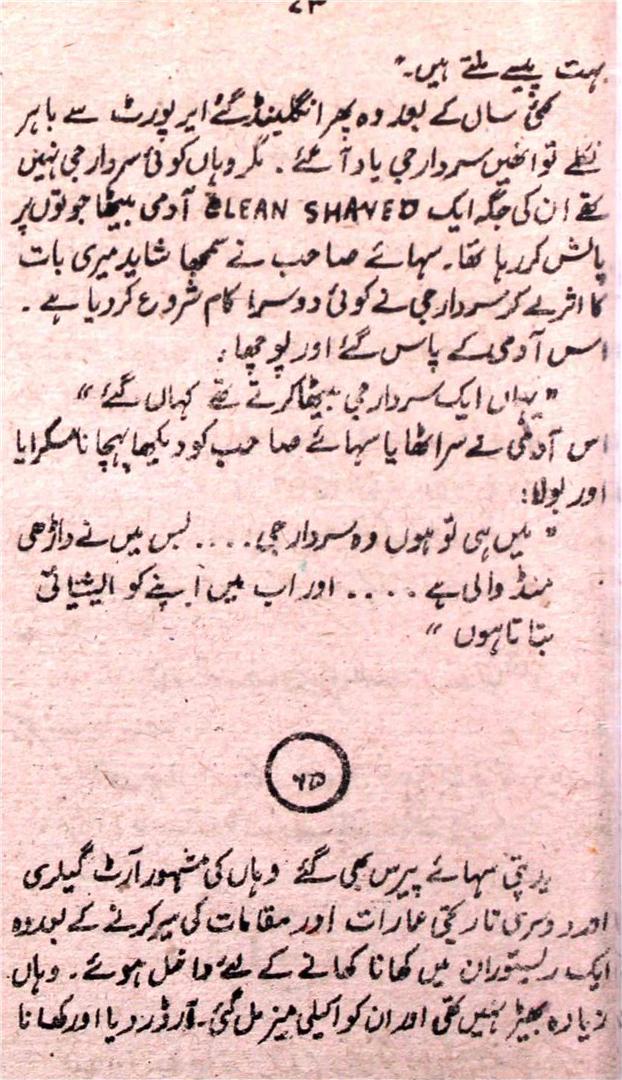 ۷۳
بہت پیسے ملتے ہیں۔"
کئی سال کے بعد وہ پھر انگلینڈ گئے ایر پورٹ سے باہر
نکلے تو انھیں سردار جی یاد آ گئے۔ مگر وہاں کوئی سردار جی نہیں
تھے ان کی جگہ ایک CLEAN SHAVED آدمی بیٹھا جوتوں پر
پالش کر رہا تھا۔ سہائے صاحب نے سمجھا شاید میری بات
کا اثر لے کر سردار جی نے کوئی دوسرا کام شروع کر دیا ہے۔
اس آدمی کے پاس گئے اور پوچھا:
"یہاں ایک سردار جی بیٹھا کرتے تھے کہاں گئے"
اس آدمی نے سر اٹھایا سہائے صاحب کو دیکھا پہچانا مسکرایا
اور بولا:
"میں ہی تو ہوں وہ سردار جی.... بس میں نے داڑھی
منڈ والی ہے .... اور اب میں اپنے کو ایشیائی
بتاتا ہوں"
۶۵
سہائے پیرس بھی گئے وہاں کی مشہور آرٹ گیلری
اور دوسری تاریخی عمارات اور مقامات کی سیر کرنے کے بعد وہ
ایک ریستوران میں کھانا کھانے کے لئے داخل ہوئے۔ وہاں
زیادہ بھیڑ نہیں تھی اور ان کو اکیلی میز مل گئی۔ آرڈر دیا اور کھانا